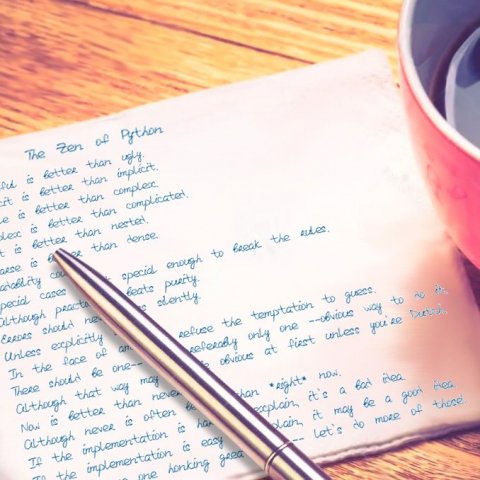 The Zen of Python
ful is better than ugly.
cit is better than implicit.
le is better than complex.
plex is better than complicated.
t is better than nested.
arse is better than dense.
adability cou
pecial cases special enough to break the rules.
Although pract beats purity.
Errors should ne s silently.
Unless explicitly
In the face of am refuse the temptation to guess.
There should be one-- referably only one --obvious way to do it.
Although that way may obvious at first unless you're Dutch.
Now is better than never
Although never is often be than *right* now.
If the implementation is har explain, it's a bad idea
If the implementation is easy plain, it may be a good idea
one honking grea -- let's do more of those!